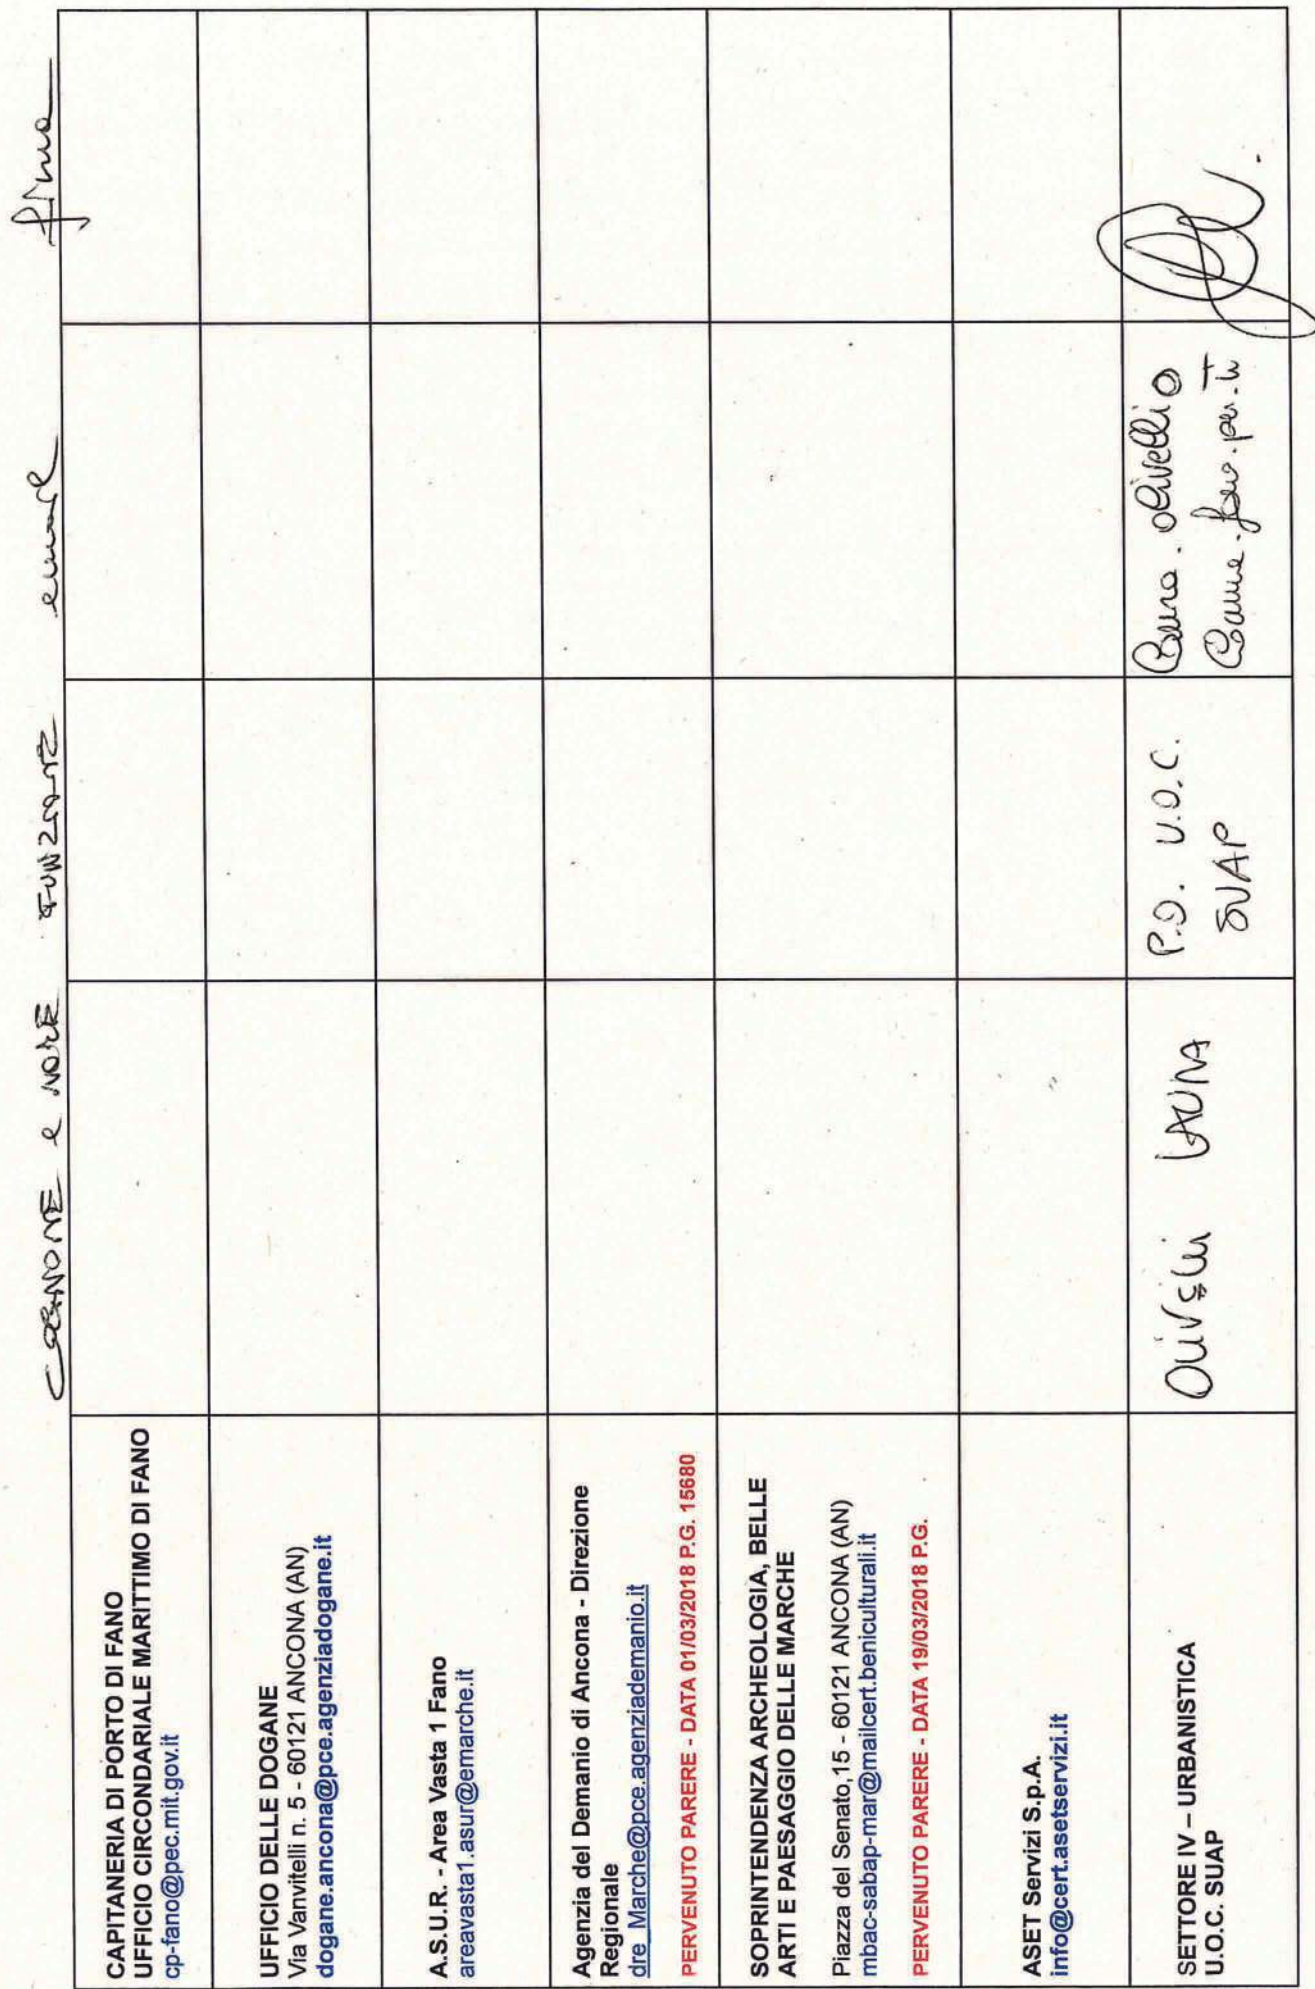 COGNOME e NOME FUNZIONE email firma
CAPITANERIA DI PORTO DI FANO
UFFICIO CIRCONDARIALE MARITTIMO DI FANO
cp-fano@pec.mit.gov.it
UFFICIO DELLE DOGANE
Via Vanvitelli n. 5 - 60121 ANCONA (AN)
dogane.ancona@pce.agenziadogane.it
A.S.U.R. - Area Vasta 1 Fano
areavasta1.asur@emarche.it
Agenzia del Demanio di Ancona - Direzione
Regionale
dre_Marche@pce.agenziademanio.it
PERVENUTO PARERE - DATA 01/03/2018 P.G. 15680
SOPRINTENDENZA ARCHEOLOGIA, BELLE
ARTI E PAESAGGIO DELLE MARCHE
Piazza del Senato,15 - 60121 ANCONA (AN)
mbac-sabap-mar@mailcert.beniculturali.it
PERVENUTO PARERE - DATA 19/03/2018 P.G.
ASET Servizi S.p.A.
info@cert.asetservizi.it
SETTORE IV – URBANISTICA
U.O.C. SUAP
LAURA
P.O. U.O.C.
SUAP